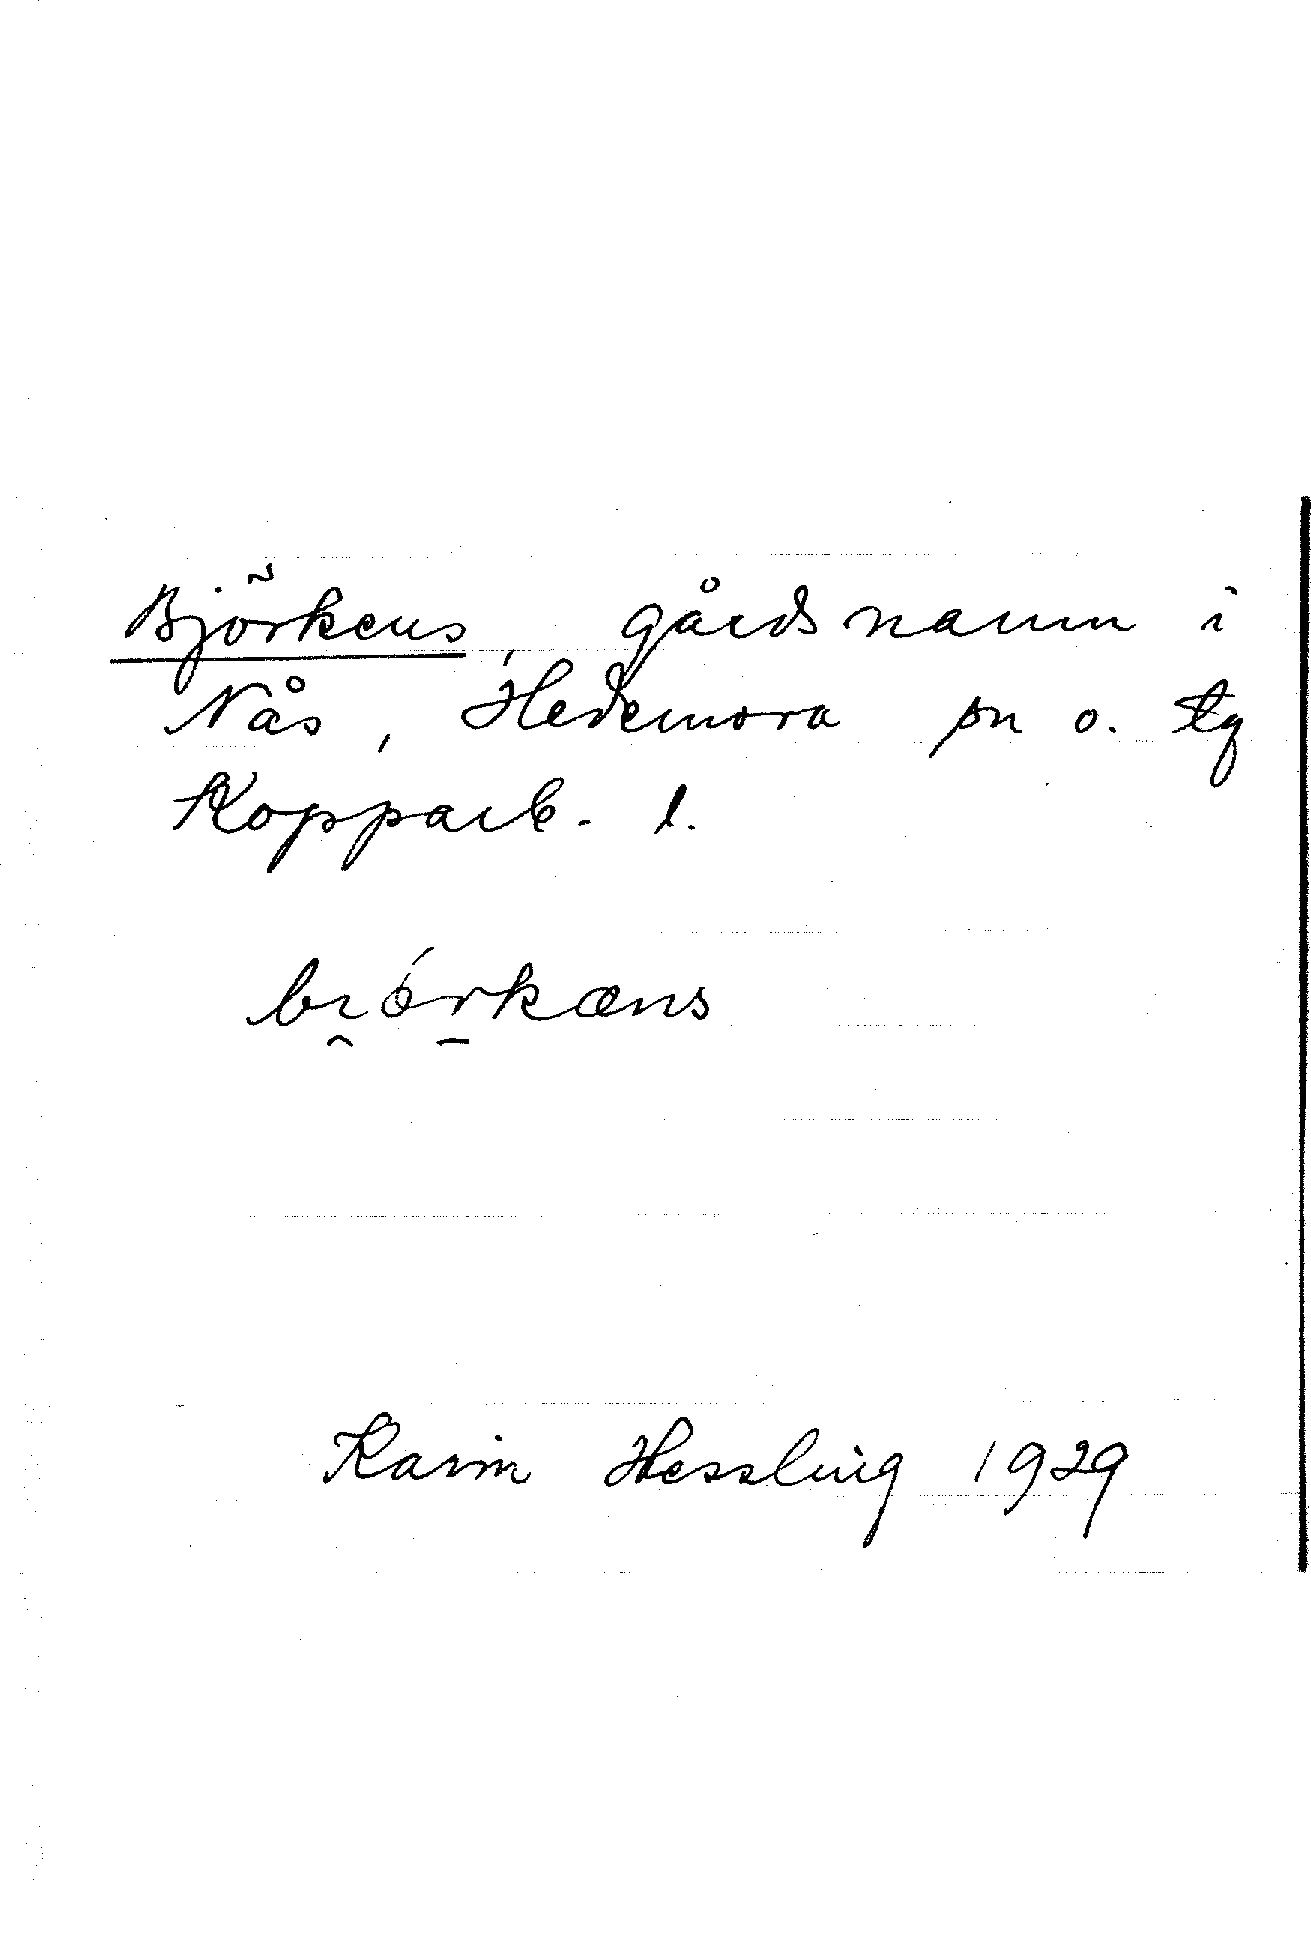 Björkens, gårdsnamn i
Nås, Hedemora sn o. tg
Kopparb. l.
bi̯ǿrkæns
Karin Hessling 1929